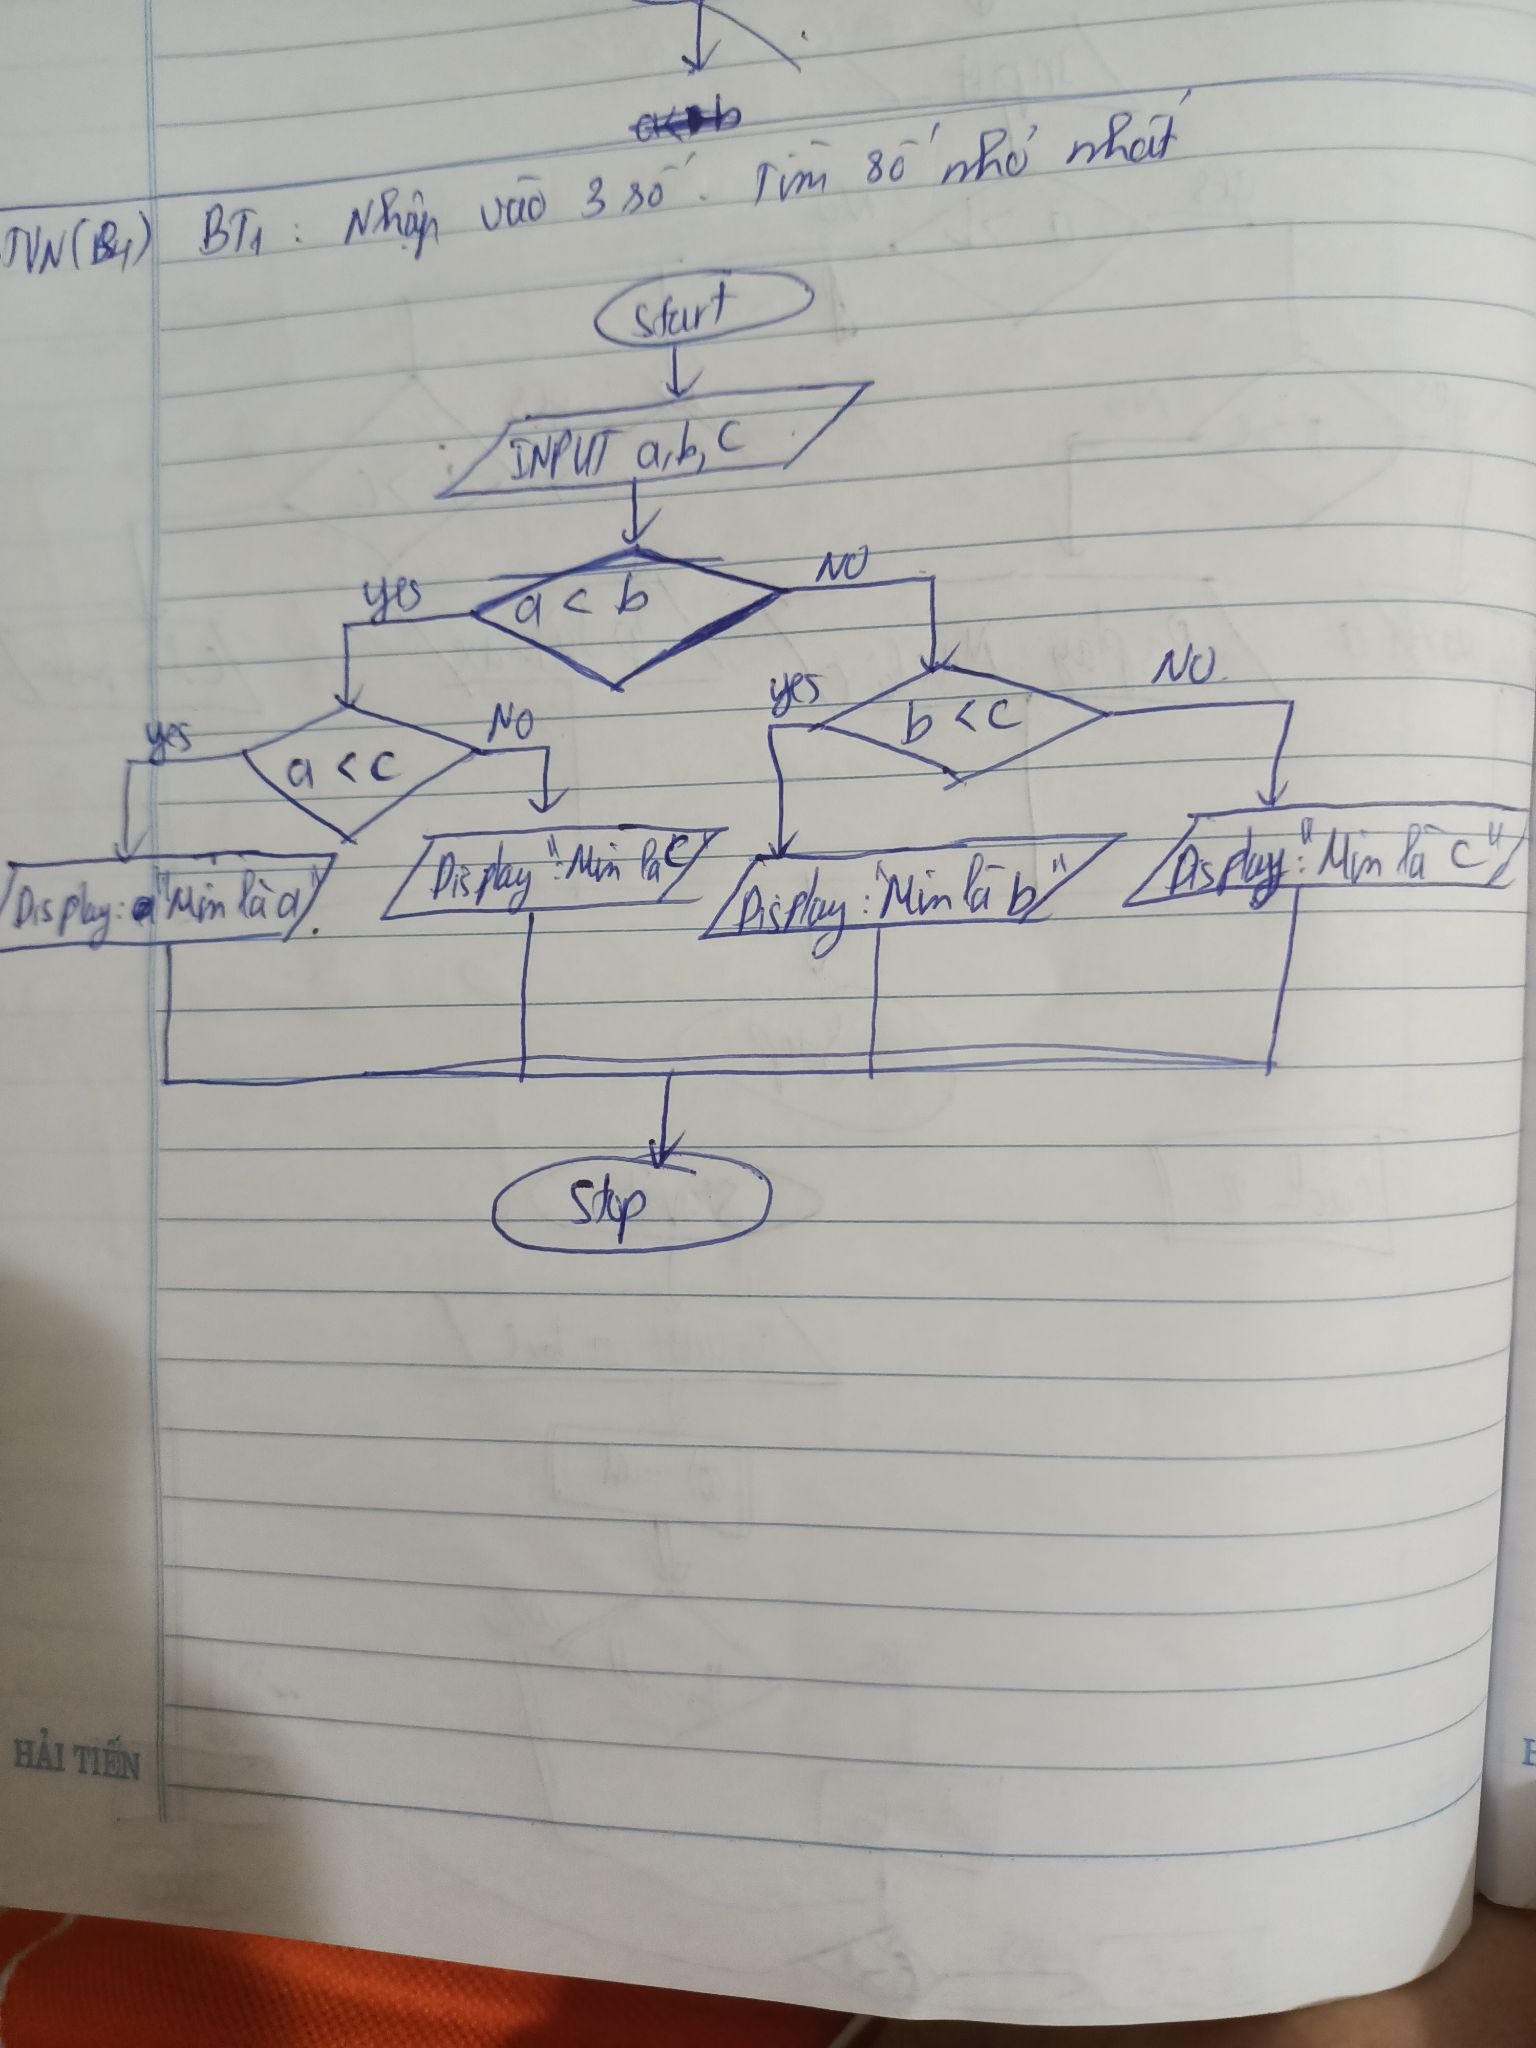 BT1: Nhập vào 3 số. Tìm số nhỏ nhất
Start
INPUT a,b,c
a < b
yes
NO
a < c
yes
NO
b < c
yes
NO
Display: "Min là a"
Display: "Min là c"
Display: "Min là b"
Display: "Min là c"
Stop
HẢI TIẾN